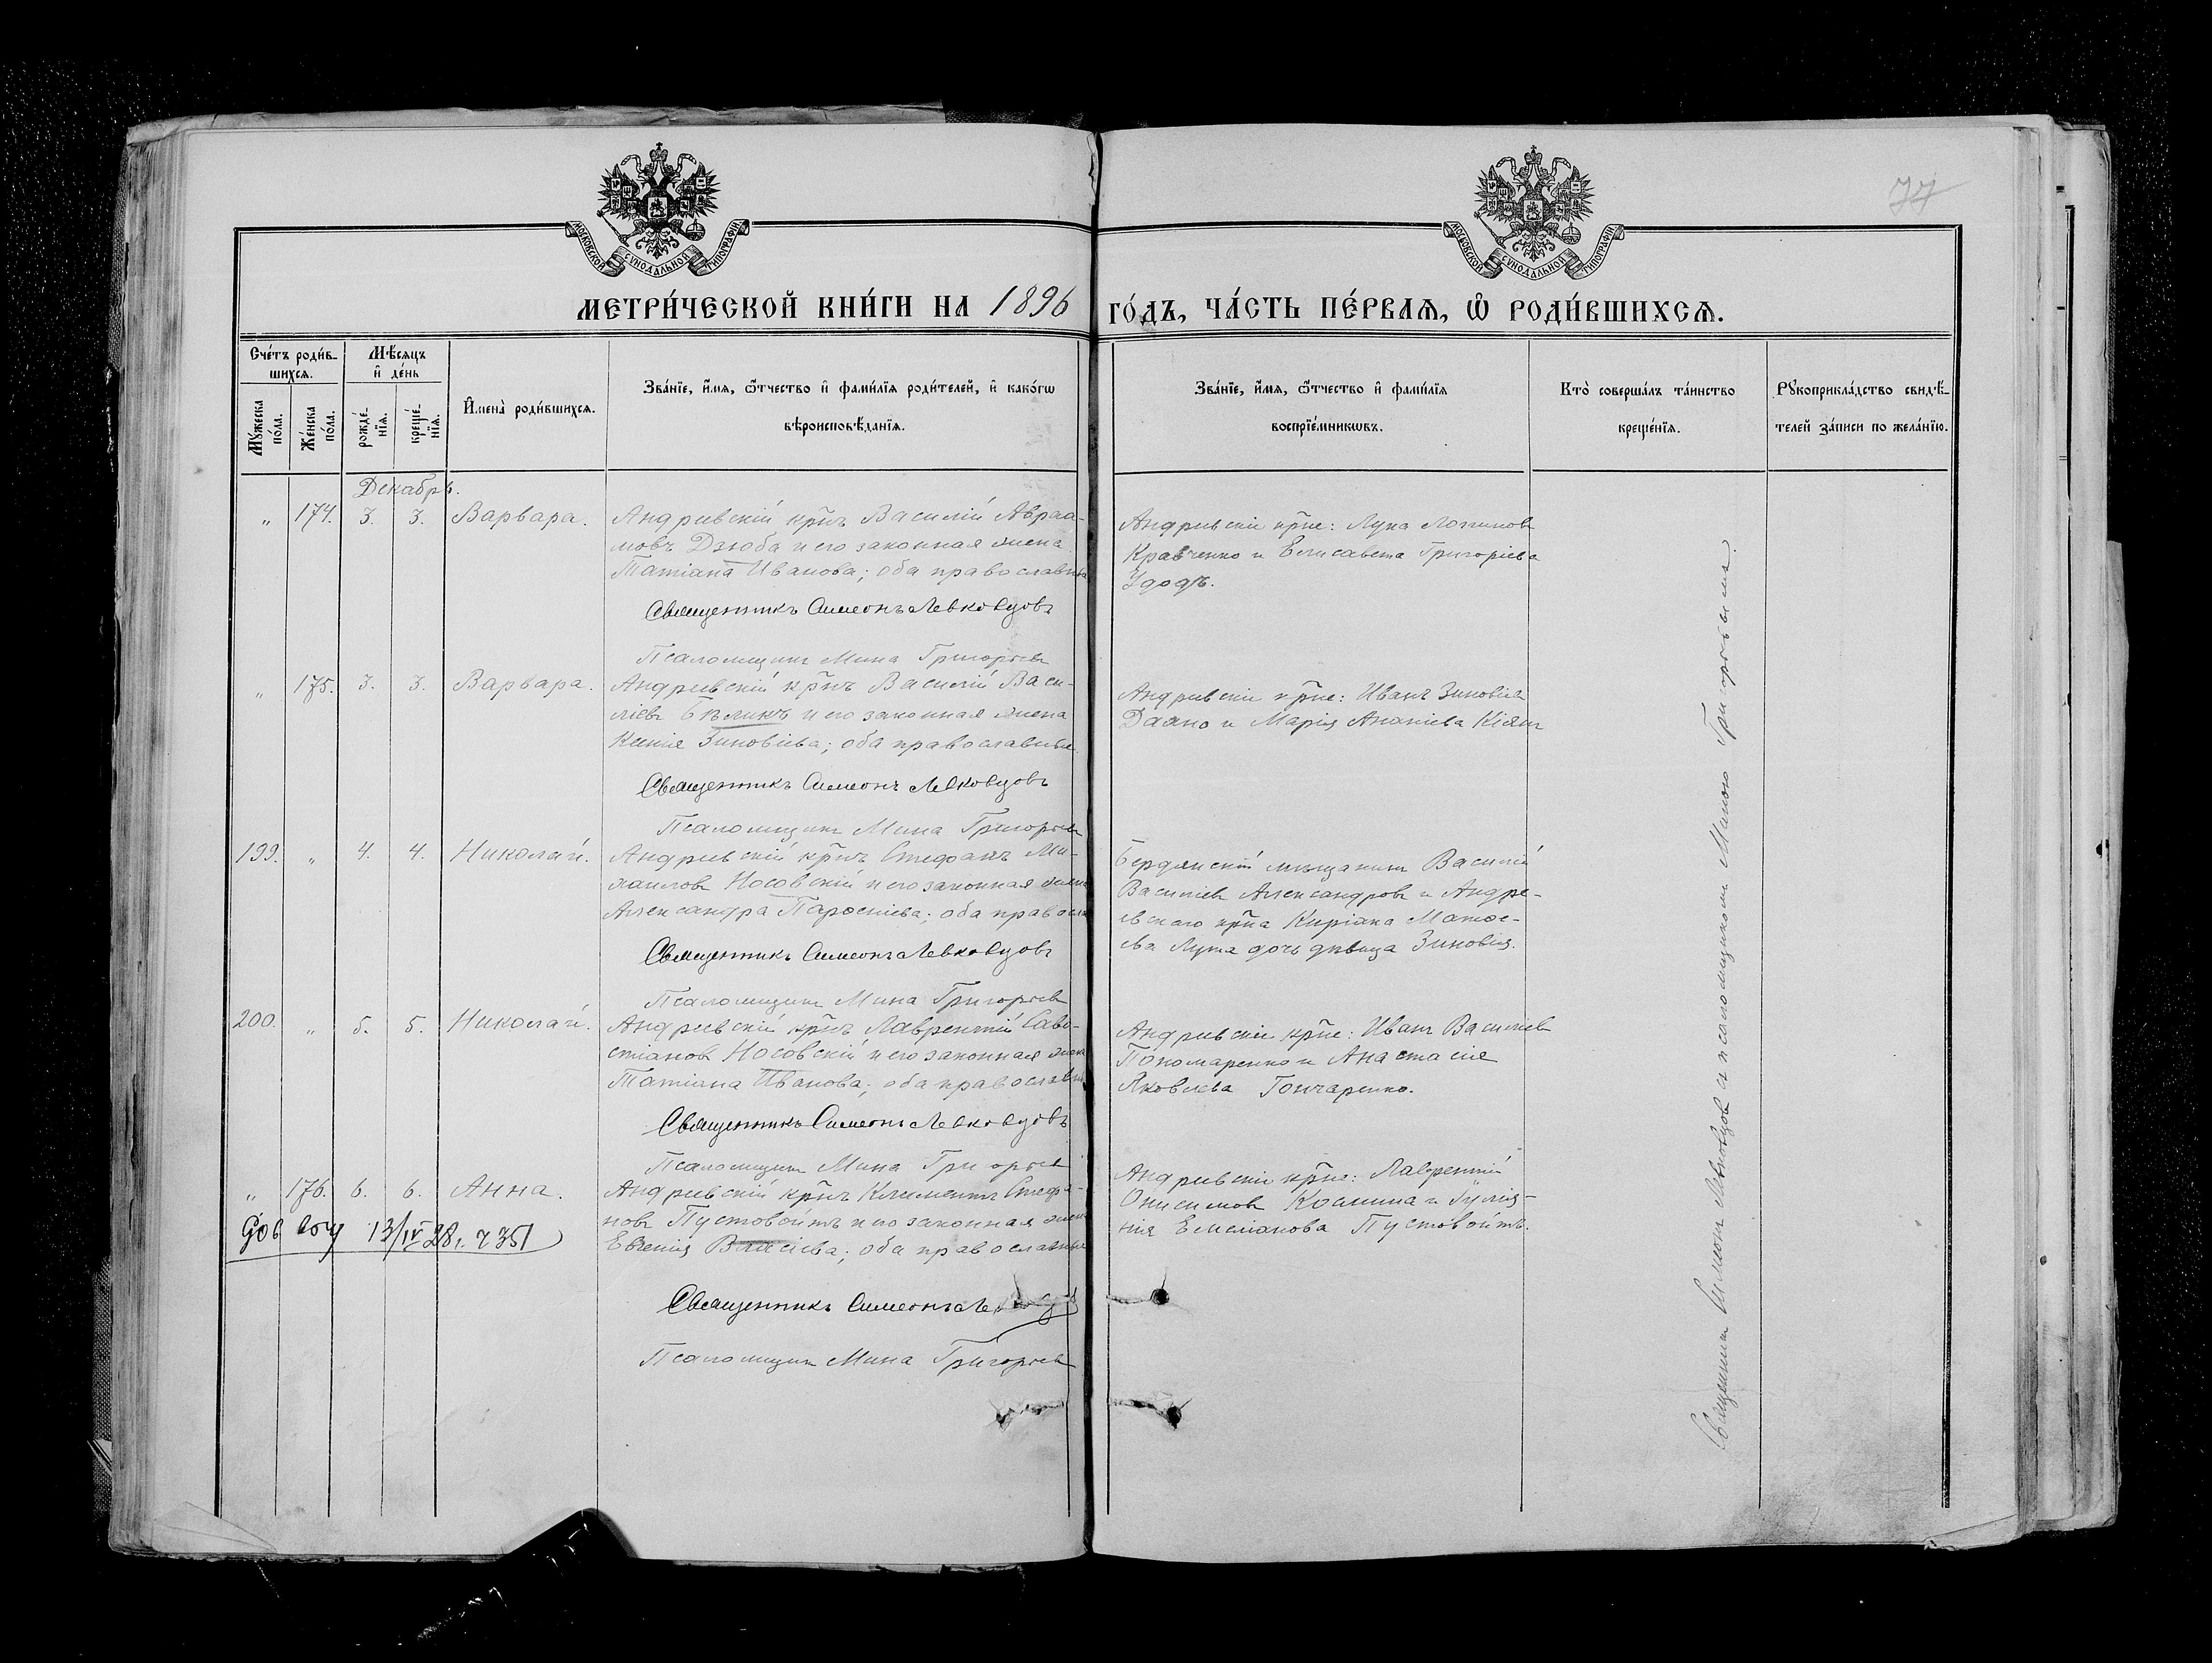 77
МОСКОВСКОЙ СѴНОДАЛЬНОЙ ТИПОГРАФІИ
МОСКОВСКОЙ СѴНОДАЛЬНОЙ ТИПОГРАФІИ
МЕТРИ́ЧЕСКОЙ КНИ́ГИ НА 1896 ГО́ДЪ, ЧА́СТЬ ПЕ́РВАѦ, Ѽ РОДИ́ВШИХСѦ.
Сче́тъ роди́в-
шихсѧ.
Мꙋ́жеска по́ла.
Же́нска по́ла.
Мѣ́сѧцъ
и҆ де́нь
рожде́-
нїѧ.
креще́-
нїѧ.
И҆мена̀ роди́вшихсѧ.
Зва́нїе, и҆́мѧ, ѻ҆́тчество и҆ фами́лїѧ роди́телей, и҆ како́гѡ
вѣроисповѣ́данїѧ.
Зва́нїе, и҆́мѧ, ѻ҆́тчество и҆ фами́лїѧ
воспрїе́мникѡвъ.
Кто̀ соверша́лъ та́инство
креще́нїѧ.
Рꙋкоприкла́дство свидѣ́-
телей за́писи по жела́нїю.
Декабрь.
" 174. 3. 3. Варвара.
Андреевскій кр̃нъ Василій Авраа-
мовъ Дзюба и его законная жена
Татіана Иванова; оба православные
Священникъ Симеонъ Левковцовъ
Псаломщикъ Мина Григорьевъ
Андреевскіе кр̃не: Лука Логиновъ
Кравченко и Елисавета Григоріева
Удодъ.
" 175. 3. 3. Варвара.
Андреевскій кр̃нъ Василій Васи-
ліевъ Бѣликъ и его законная жена
Ксенія Зиновіева; оба православные.
Священникъ Симеонъ Левковцовъ
Псаломщикъ Мина Григорьевъ
Андреевскіе кр̃не: Иванъ Зиновіевъ
и Марія Ананіева Кіянъ
199. " 4. 4. Николай.
Андреевскій кр̃нъ Стефанъ Ми-
хаиловъ Носовскій и его законная жена
Александра; оба правосла
Священникъ Симеонъ Левковцовъ
Псаломщикъ Мина Григорьевъ
Бердянскій мѣщанинъ Василій
Василіевъ Александровъ и Андре-
евского кр̃на Киріака Матѳе-
ева дочь дѣвица Зиновія.
200. " 5. 5. Николай.
Андреевскій кр̃нъ Лаврентій Сава-
стіановъ Носовскій и его законная жена
Татіана Иванова; оба православные
Священникъ Симеонъ Левковцовъ
Псаломщикъ Мина Григорьевъ
Андреевскіе кр̃не: Иванъ Василіевъ
Пономаренко и Анастасія
Яковлева Гончаренко.
" 176. 6. 6. Анна.
Андреевскій кр̃нъ Климентъ Стефа-
новъ Пустовойтъ и его законная жена
Евгенія Власіева; оба православные
Священникъ Симеонъ
Псаломщикъ Мина Григорьевъ
Андреевскіе кр̃не: Лаврентій
Онисимовъ и Гуліа-
нія Емеліанова Пустовойтъ.
13/IV 28
Священникъ Симеонъ Левковцовъ съ псаломщикомъ Миною Григорьевымъ.